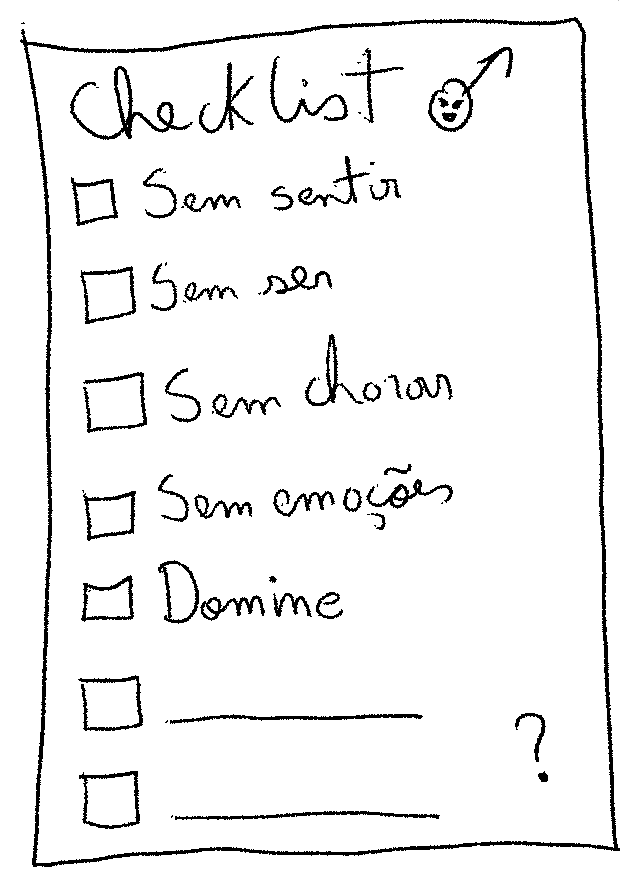 Checklist
Sem sentir
Sem ser
Sem chorar
Sem emoções
Domine
?